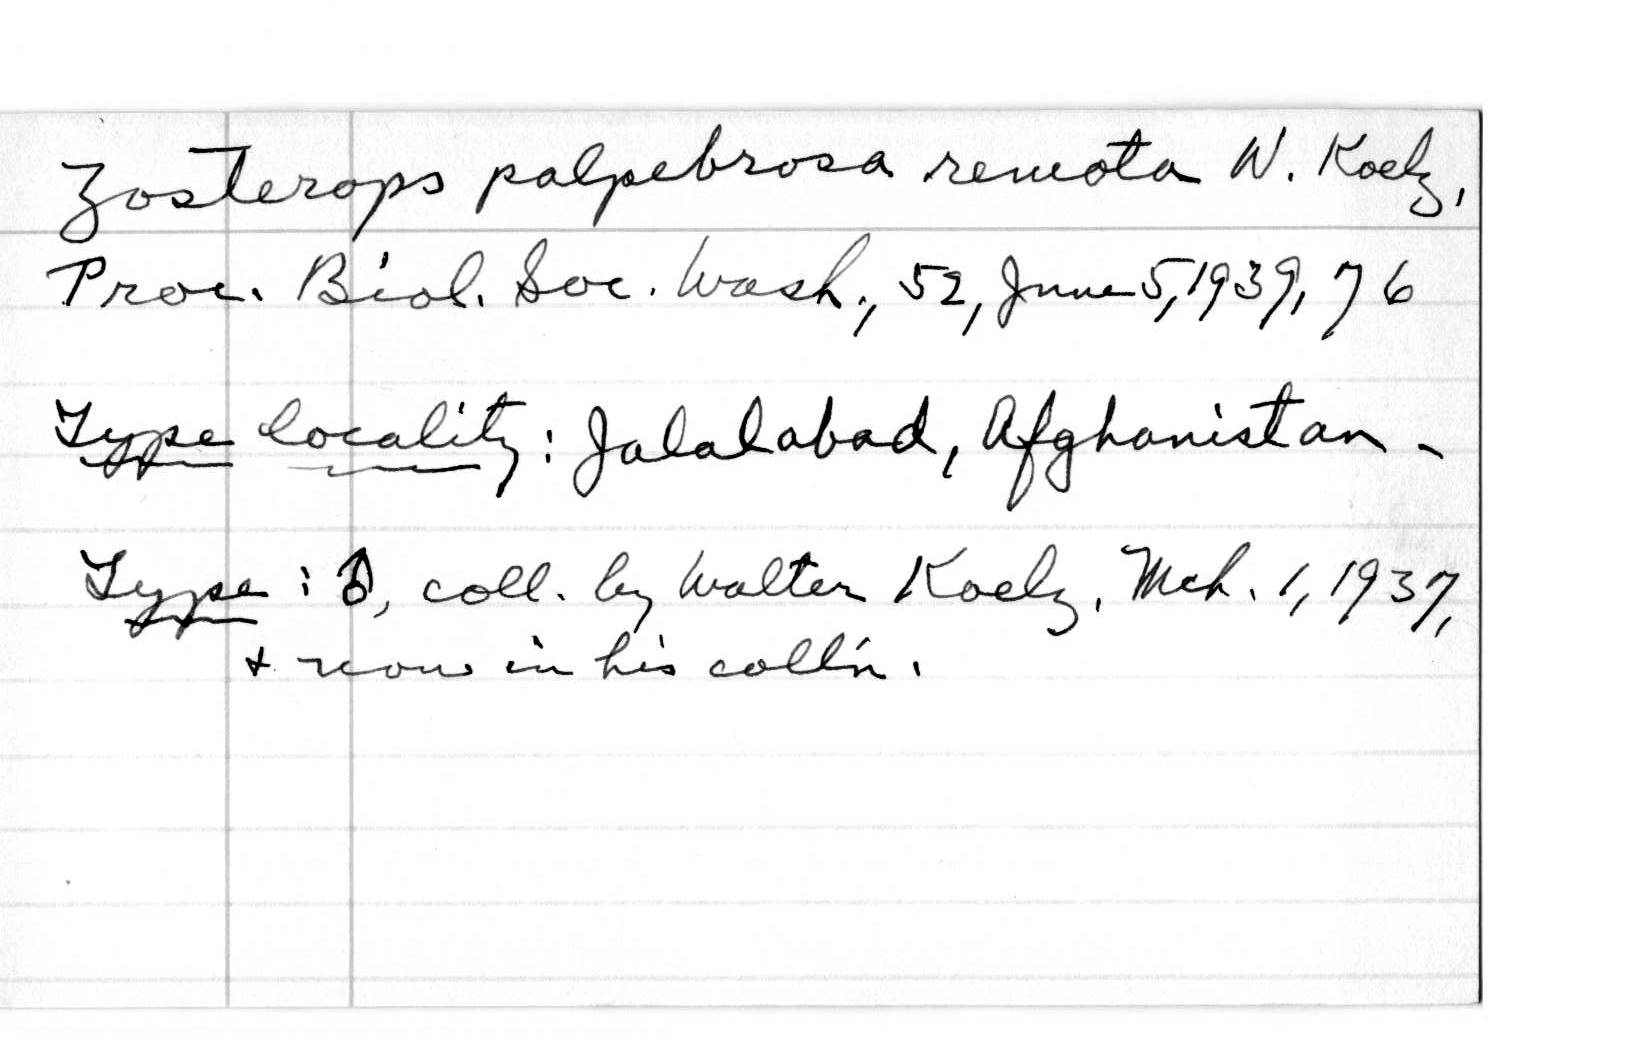 Zosterops palpebrosa remota W. Koelz,
Proc. Biol. Soc. Wash., 52, June 5, 1939, 76
Type locality: Jalalabad, Afghanistan.
Type: ♂, coll. by Walter Koelz, Mch. 1, 1937,
+ now in his coll'n.